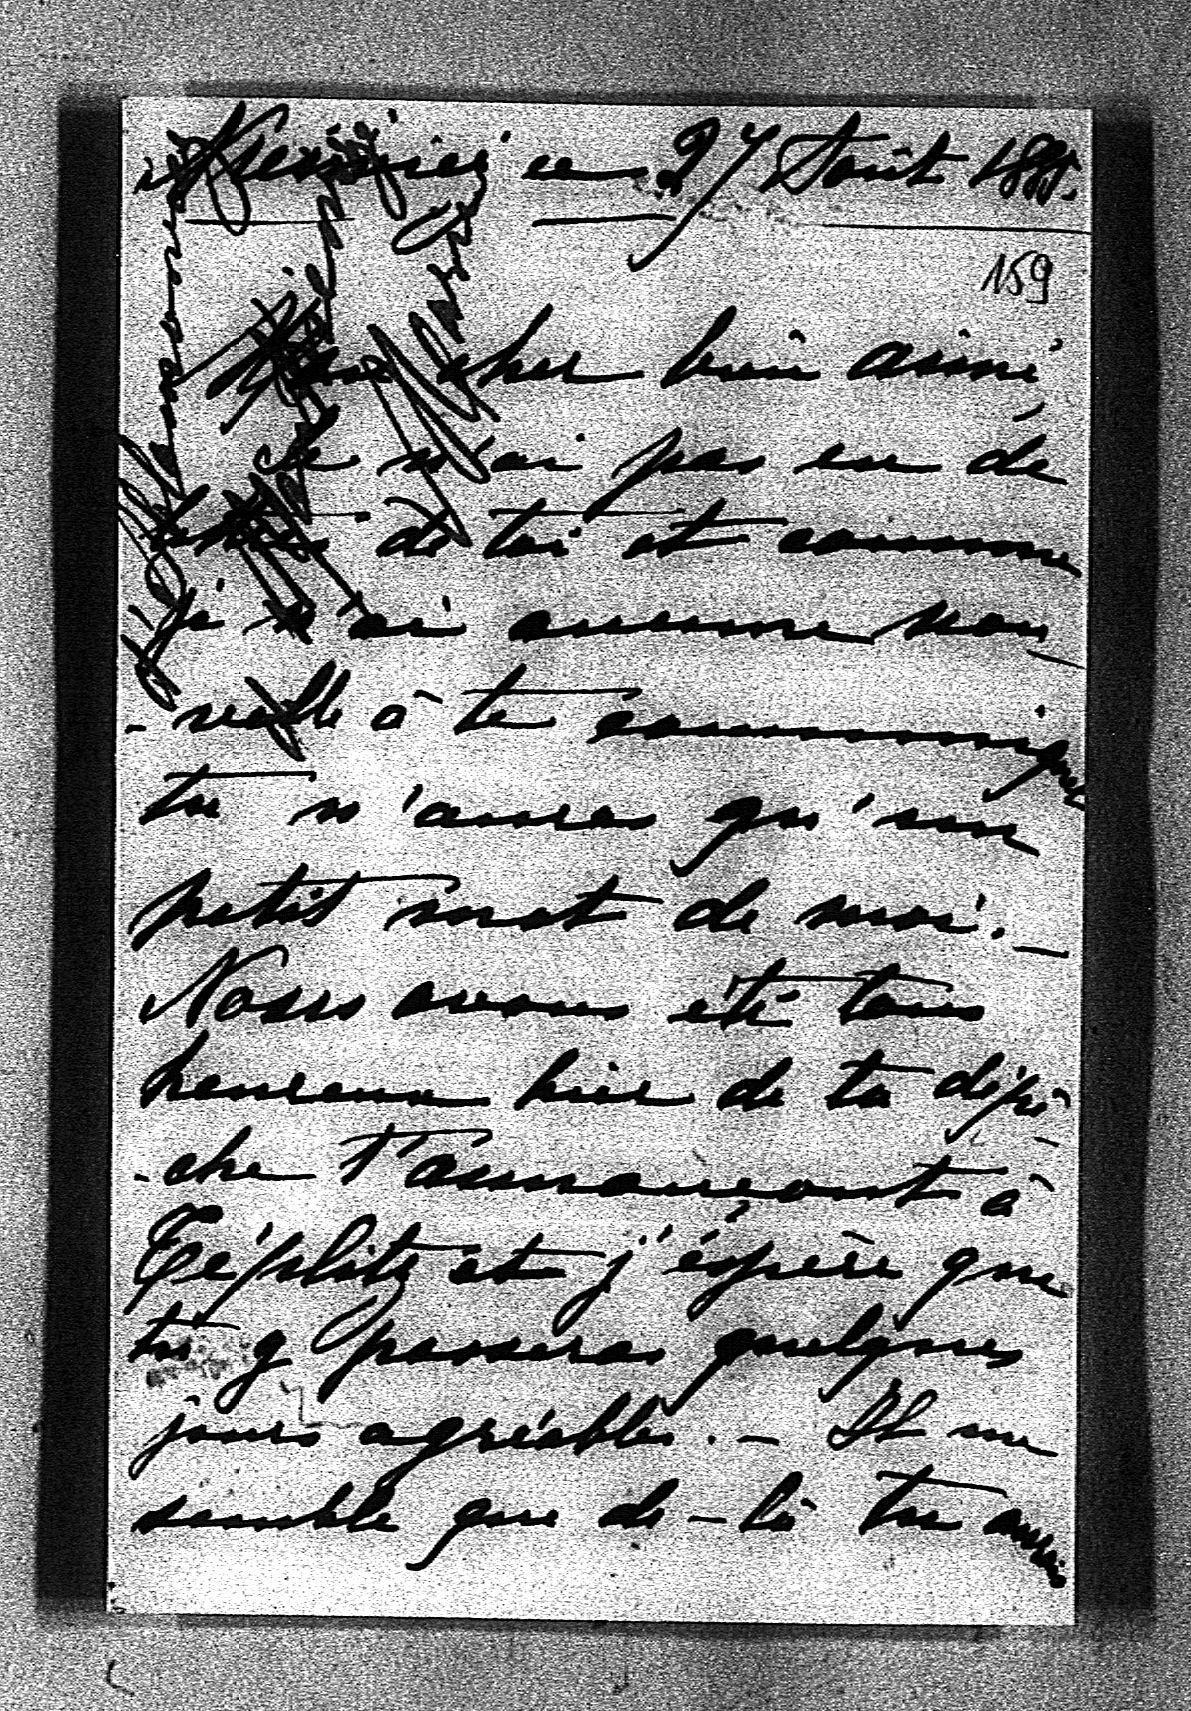 ce 27 Août
159
Mon cher bien aimé
Je n'ai pas eu de
lettres de toi et comme
je n'ai aucune nou
-velle à te communiquer
tu n'auras qu'un
petit mot de moi. _
Nous avons été tous
heureux hier de ta dépê
-che t'annonçant à
Téplitz et j'éspère que
tu y passeras quelques
jours agréables. _ Il me
semble que de-là tu aurais